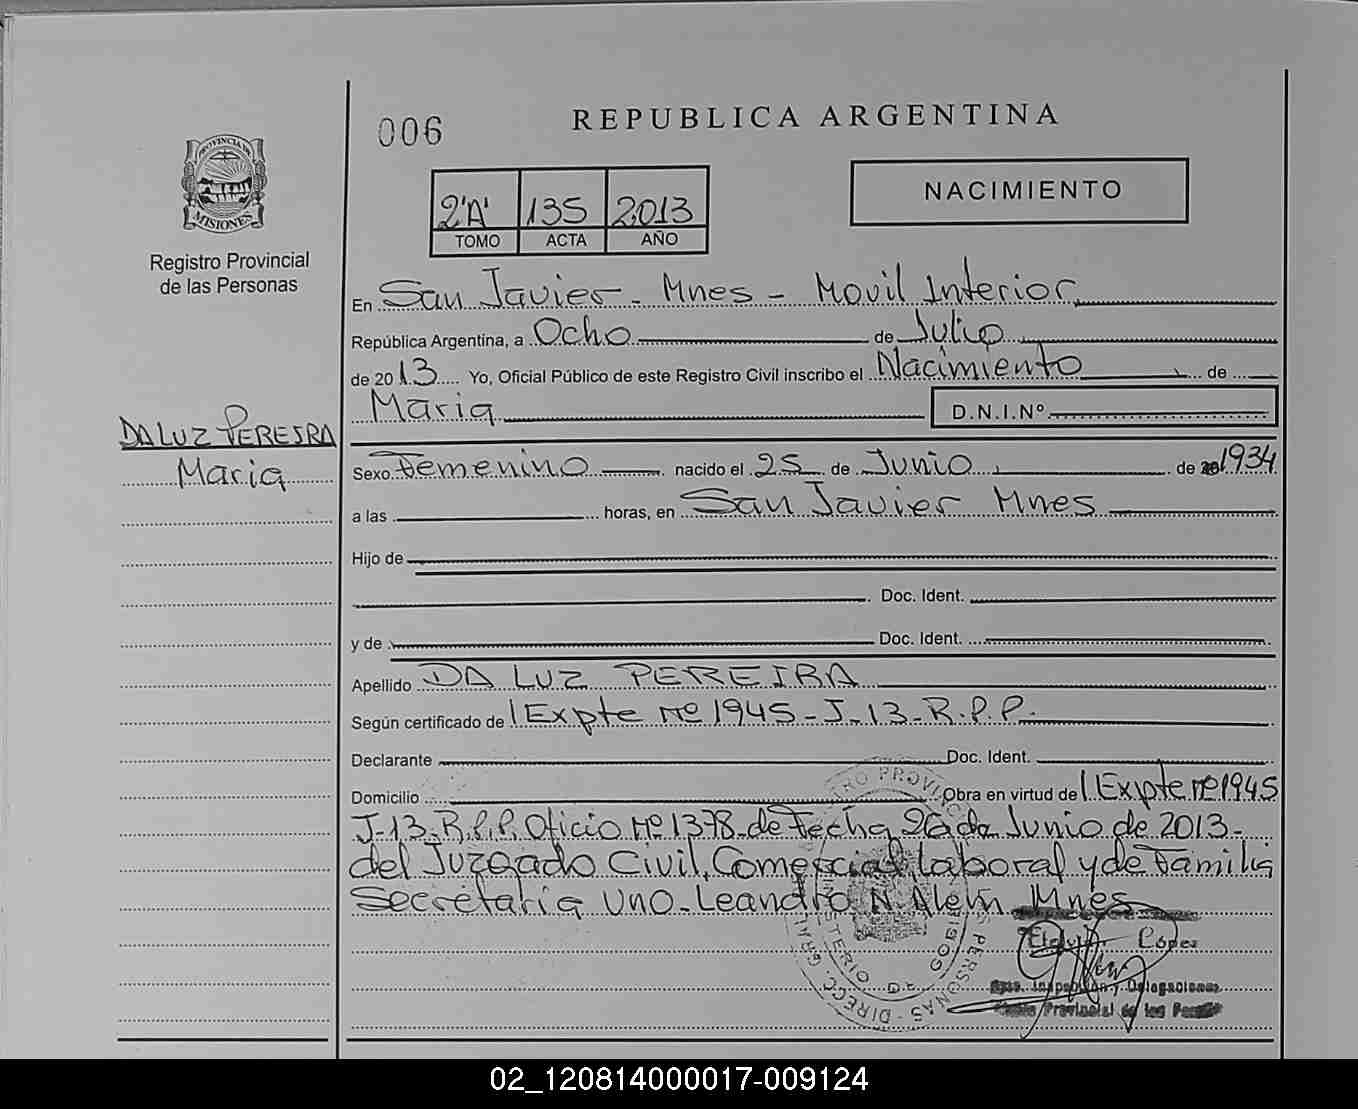 006
REPUBLICA ARGENTINA
PROVINCIA DE
MISIONES
Registro Provincial
de las Personas
2'A' 135 2013
TOMO ACTA AÑO
NACIMIENTO
En San Javier - Mnes - Movil Interior
República Argentina, a Ocho de Julio
de 2013 Yo, Oficial Público de este Registro Civil inscribo el Nacimiento de
Maria D.N.I.Nº
DA LUZ PEREIRA
Maria
Sexo Femenino nacido el 25 de Junio de 1934
a las horas, en San Javier Mnes
Hijo de
Doc. Ident.
y de Doc. Ident.
Apellido DA LUZ PEREIRA
Según certificado de Expte nº 1945-J-13-R.P.P.
Declarante Doc. Ident.
Domicilio Obra en virtud de Expte nº 1945
J-13-R.P.P. Oficio Nº 1378-de Fecha 26 de Junio de 2013-
del Juzgado Civil, Comercial, Laboral y de Familia
Secretaria Uno-Leandro N. Alem Mnes
López
Inspección y Delegaciones
Provincial de las
02_120814000017-009124